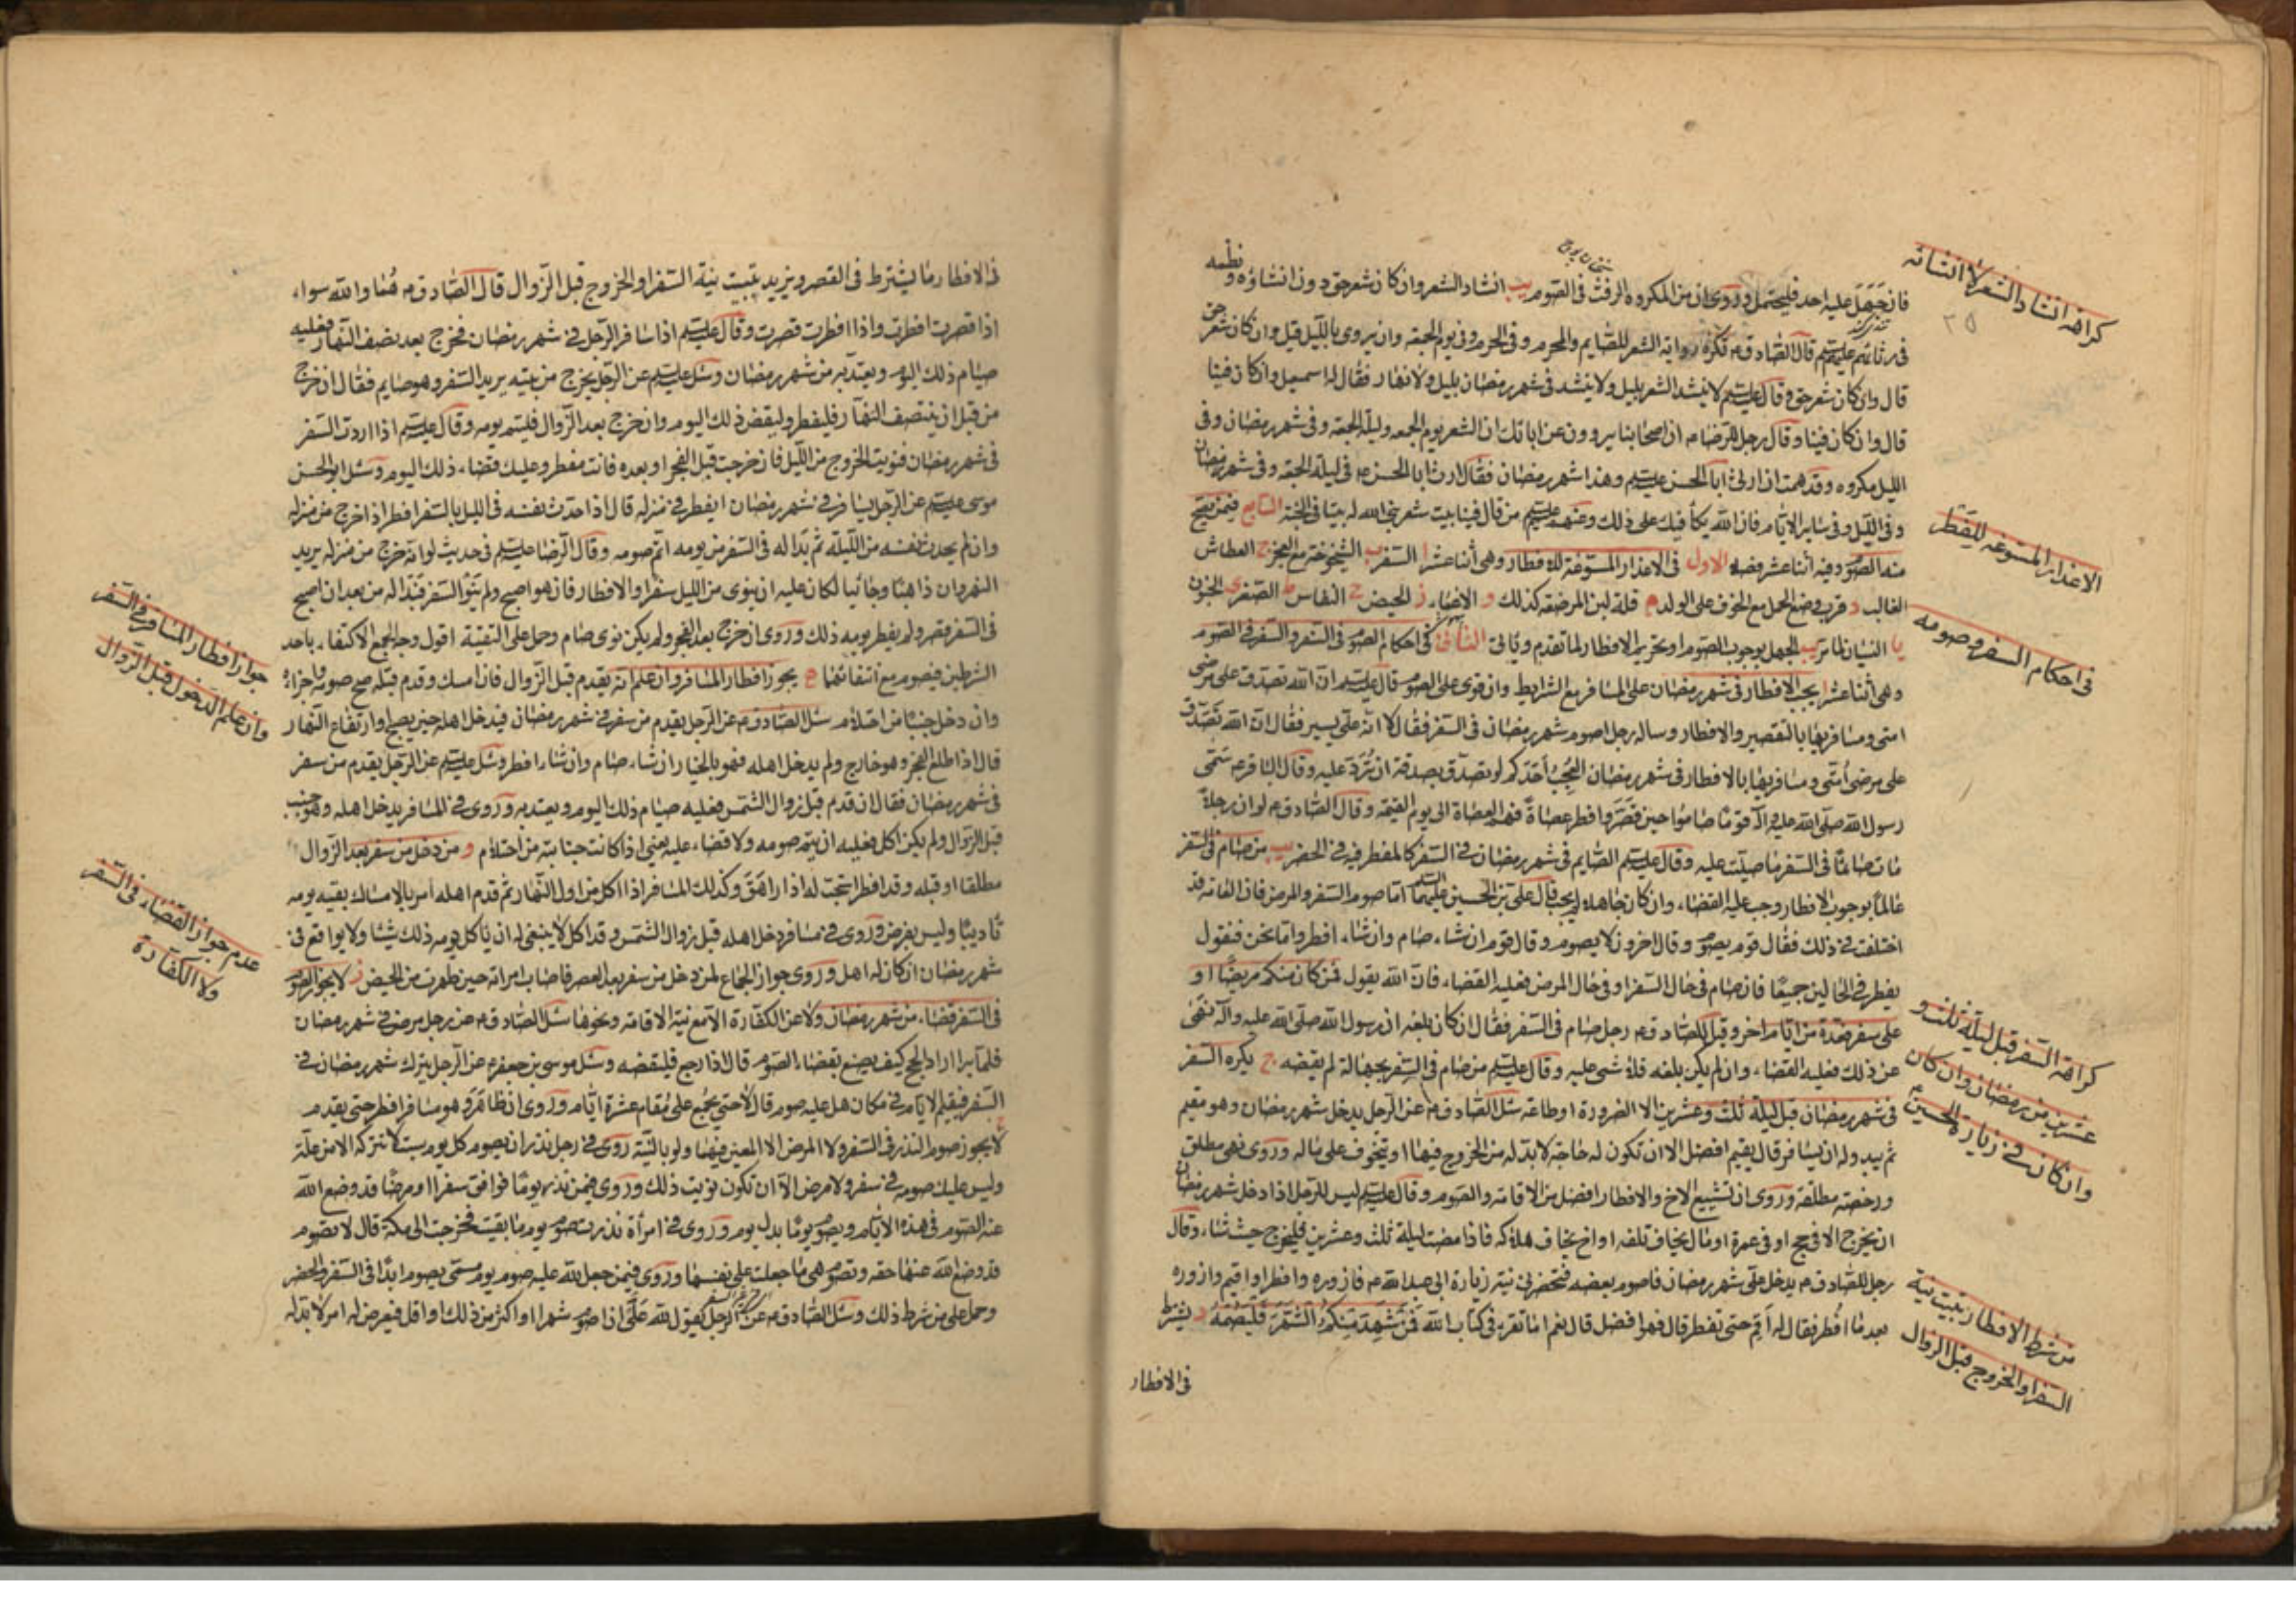 كراهة انشاد الشعر لا انشائه
٢٥
فان جهل عليه احد فليحتمل وروى ان من المكروه الرفث فى الصوم يب انشاد الشعر وان كان شعر حق دون انشاؤه ونظمه
فى رثائهم عليهم السلم قال الصادق ع تكره رواية الشعر للصايم والمحرم وفى الحرم وفى يوم الجمعة وان يروى بالليل قيل وان كان شعر حق
قال وان كان شعر حق وقال عليه السلم لا ينشد الشعر بليل ولا ينشد فى شهر رمضان بليل ولا نهار فقال له اسمعيل وان كان فينا
قال وان كان فينا وقال رجل للرضا ع ان اصحابنا يروون عن ابائك ان الشعر يوم الجمعه وليلة الجمعة وفى شهر رمضان وفى
الليل مكروه وقد هممت ان ارثى ابا الحسن عليه السلم وهذا شهر رمضان فقال ارث ابا الحسن ع فى ليلة الجمعة وفى شهر رمضان
وفى الليل وفى ساير الايام فان الله يكافيك على ذلك وعنهم عليهم السلم من قال فينا بيت شعر بنى الله له بيتا فى الجنة التاسع فيمن يصح
الاعذار المسوغه للفطر
منه الصوم وفيه اثنا عشر فصلا الاول فى الاعذار المسوغة للافطار وهى اثنا عشر ا السفر ب الشيخوخة مع العجز ج العطاش
الغالب د قرب وضع الحمل مع الخوف على الولد ه قلة لبن المرضعة كذلك و الاغماء ز الحيض ح النفاس ط الصغر ى الجنون
فى احكام السفر وصومه
يا النسيان لما مر يب الجهل بوجوب الصوم او تحريم الافطار لما تقدم وياتى الثانى فى احكام الصوم فى السفر والسفر فى الصوم
وهى اثنا عشر ا يجب الافطار فى شهر رمضان على المسافر مع الشرايط وان قوى على الصوم قال عليه السلم ان الله تصدق على مرضى
امتى ومسافريها بالتقصير والافطار وساله رجل اصوم شهر رمضان فى السفر فقال لا انه على يسير فقال ان الله تصدق
على مرضى امتى ومسافريها بالافطار فى شهر رمضان ايعجب احدكم لو تصدق بصدقة ان ترد عليه وقال الباقر ع سمى
رسول الله صلى الله عليه وآله قوما صاموا حين قصر وافطر عصاة فهم العصاة الى يوم القيمة وقال الصادق ع لو ان رجلا
مات صائما فى السفر ما صليت عليه وقال عليه السلم الصايم فى شهر رمضان فى السفر كالمفطر فيه فى الحضر ب من صام فى السفر
عالما بوجوب الافطار وجب عليه القضاء وان كان جاهلا لم يجب قال على بن الحسين عليهما السلم اما صوم السفر والمرض فان العامة قد
اختلفت فى ذلك فقال قوم يصوم وقال اخرون لا يصوم وقال قوم ان شاء صام وان شاء افطر واما نحن فنقول
يفطر فى الحالين جميعا فان صام فى حال السفر او فى حال المرض فعليه القضاء فان الله يقول فمن كان منكم مريضا او
على سفر فعدة من ايام اخر وقيل للصادق ع رجل صام فى السفر فقال ان كان بلغه ان رسول الله صلى الله عليه وآله نهى
كراهة السفر قبل ليلة ثلث و
عشرين من رمضان وان كان
وان كان فى زيارة الحسين ع
عن ذلك فعليه القضاء وان لم يكن بلغه فلا شىء عليه وقال عليه السلم من صام فى السفر بجهالة لم يقضه ج يكره السفر
فى شهر رمضان قبل ليلة ثلث وعشرين الا لضرورة او طاعة سئل الصادق ع عن الرجل يدخل شهر رمضان وهو مقيم
ثم يبدو له ان يسافر قال يقيم افضل الا ان تكون له حاجة لا بد له من الخروج فيها او يتخوف على ماله وروى نهى مطلق
ورخصة مطلقة وروى ان تشييع الاخ والافطار افضل من الاقامة والصوم وقال عليه السلم ليس للرجل اذا دخل شهر رمضان
ان يخرج الا فى حج او فى عمرة او مال يخاف تلفه او اخ يخاف هلاكه فاذا مضت ليلة ثلث وعشرين فليخرج حيث شاء وقال
رجل للصادق ع يدخل على شهر رمضان فاصوم بعضه فتحضرنى نية زيارة ابى عبد الله ع فازوره وافطر او اقيم وازوره
بعد ما افطر فقال له اقم حتى تفطر قال فهو افضل قال نعم اما تقرء فى كتاب الله فمن شهد منكم الشهر فليصمه د يشترط
من شرط الافطار تبييت نية
السفر او الخروج قبل الزوال
فى الافطار
فى الافطار ما يشترط فى القصر ويزيد تبييت نية السفر او الخروج قبل الزوال قال الصادق ع هنا والله سواء
اذا قصرت افطرت واذا افطرت قصرت وقال عليه السلم اذا سافر الرجل فى شهر رمضان فخرج بعد نصف النهار فعليه
صيام ذلك اليوم ويعتد به من شهر رمضان وسئل عليه السلم عن الرجل يخرج من بيته يريد السفر وهو صايم فقال ان خرج
من قبل ان ينتصف النهار فليفطر وليقض ذلك اليوم وان خرج بعد الزوال فليتم يومه وقال عليه السلم اذا اردت السفر
فى شهر رمضان فنويت الخروج من الليل فان خرجت قبل الفجر او بعده فانت مفطر وعليك قضاء ذلك اليوم وسئل ابو الحسن
موسى عليه السلم عن الرجل يسافر فى شهر رمضان ايفطر فى منزله قال اذا حدث نفسه فى الليل بالسفر افطر اذا خرج من منزله
وان لم يحدث نفسه من الليلة ثم بدا له فى السفر من يومه اتم صومه وقال الرضا عليه السلم فى حديث لو انه خرج من منزله يريد
النهروان ذاهبا وجائيا لكان عليه ان ينوى من الليل سفرا والافطار فان هو اصبح ولم ينو السفر فبدا له من بعد ان اصبح
فى السفر قصر ولم يفطر يومه ذلك وروى ان خرج بعد الفجر ولم يكن نوى صام وحمل على التقية اقول وجه الجمع الاكتفاء باحد
جواز افطار المسافر فى السفر
وان علم الدخول قبل الزوال
الشرطين فيصوم مع انتفائهما ه يجوز افطار المسافر وان علم انه يقدم قبل الزوال فان امسك وقدم قبله صح صومه واجزاه
وان دخل جنبا من احتلام سئل الصادق ع عن الرجل يقدم من سفر فى شهر رمضان فيدخل اهله حين يصبح او ارتفاع النهار
قال اذا طلع الفجر وهو خارج ولم يدخل اهله فهو بالخيار ان شاء صام وان شاء افطر وسئل عليه السلم عن الرجل يقدم من سفر
فى شهر رمضان فقال ان قدم قبل زوال الشمس فعليه صيام ذلك اليوم ويعتد به وروى فى المسافر يدخل اهله وهو جنب
قبل الزوال ولم يكن اكل فعليه ان يتم صومه ولا قضاء عليه يعنى اذا كانت جنابته من احتلام و من دخل من سفر بعد الزوال
مطلقا او قبله وقد افطر استحب له اذا راهق وكذلك المسافر اذا اكل من اول النهار ثم قدم اهله امر بالامساك بقية يومه
عدم جواز القضاء فى السفر
ولا الكفارة
تاديبا وليس بفرض وروى فى مسافر دخل اهله قبل زوال الشمس وقد اكل لا ينبغى له ان ياكل يومه ذلك شيئا ولا يواقع فى
شهر رمضان ان كان له اهل وروى جواز الجماع لمن دخل من سفر بعد العصر فاصاب امراته حين طهرت من الحيض ز لا يجوز الصوم
فى السفر قضاء من شهر رمضان ولا عن الكفارة الا مع نية الاقامة ونحوها سئل الصادق ع عن رجل مرض فى شهر رمضان
فلما برا اراد الحج كيف يصنع بقضاء الصوم قال اذا رجع فليقضه وسئل موسى بن جعفر ع عن الرجل يترك شهر رمضان فى
السفر فيقيم الايام فى مكان هل عليه صوم قال لا حتى يجمع على مقام عشرة ايام وروى ان ظاهر وهو مسافر افطر حتى يقدم
ح لا يجوز صوم النذر فى السفر ولا المرض الا المعين فيهما ولو بالنية روى فى رجل نذر ان يصوم كل يوم سبت لا تتركه الا من علة
وليس عليك صومه فى سفر ولا مرض الا ان تكون نويت ذلك وروى فيمن نذر يوما فوافق سفرا او مرضا قد وضع الله
عنه الصوم فى هذه الايام ويصوم يوما بدل يوم وروى فى امرأة نذرت صوم يوم ما بقيت فخرجت الى مكة قال لا تصوم
قد وضع الله عنها حقه وتصوم هى ما جعلت على نفسها وروى فيمن جعل لله عليه صوم يوم مسمى يصوم ابدا فى السفر والحضر
وحمل على من شرط ذلك وسئل الصادق ع عن الرجل يقول لله على ان اصوم شهرا او اكثر من ذلك او اقل فيعرض له امر لا بد له